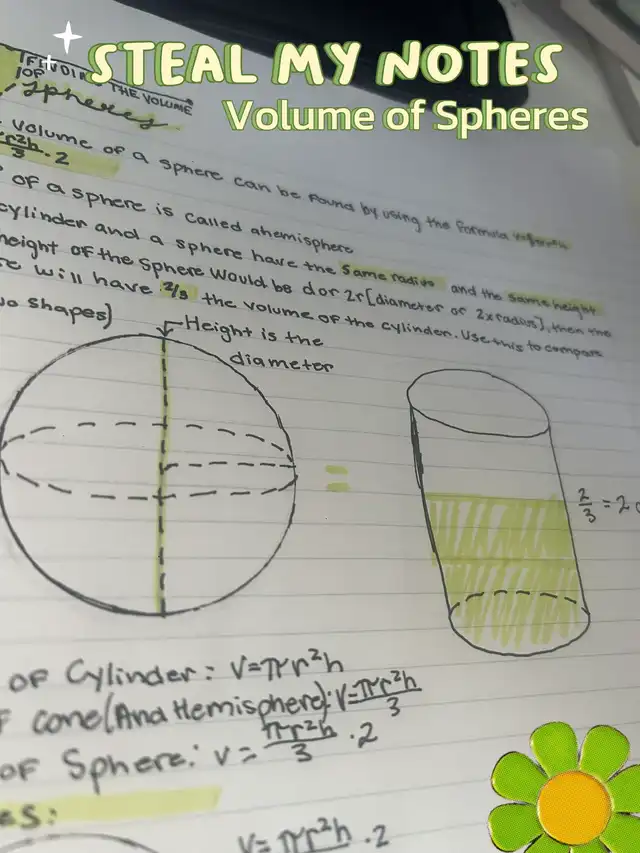 STEAL MY NOTES
Volume of Spheres
THE VOLUME
OF
Spheres
VOLUME OF a sphere can be found by using the formula
πr²h/3 · 2
OF a sphere is called ahemisphere
cylinder and a sphere have the same radius and the same height
height of the sphere would be d or 2r [diameter or 2xradius], then the
will have 2/3 the volume of the cylinder. Use this to compare
shapes)
Height is the
diameter
=
2/3 = 2
OF Cylinder: V=πr²h
cone(And Hemisphere): V=πr²h/3
OF Sphere: V= πr²h/3 · 2
es:
V= πr²h · 2